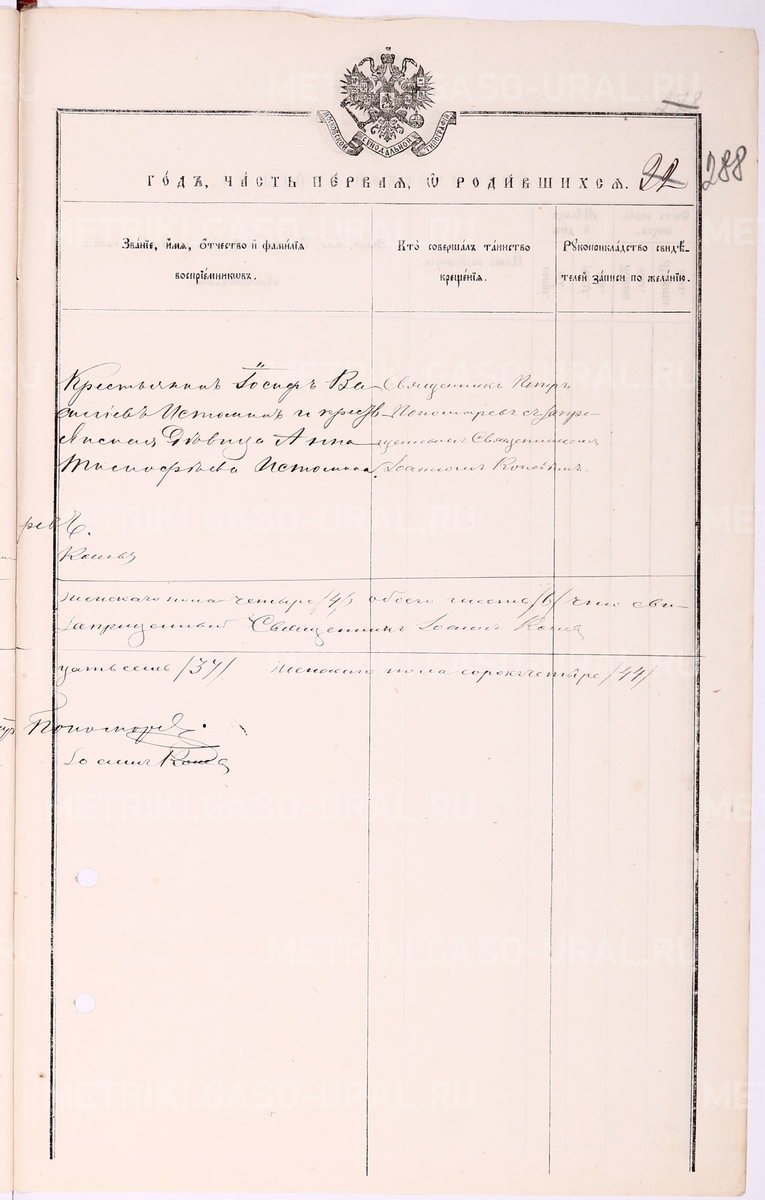 МОСКОВСКОЙ СѴНОДАЛЬНОЙ ТИПОГРАФІИ
ГОДЪ, ЧАСТЬ ПЕРВАЯ, Ѡ РОДИВШИХСЯ. 22 288
Званіе, имя, отчество и фамилія
воспріемниковъ.
Кто совершалъ таинство
крещенія.
Рукоприкладство свидѣ-
телей записи по желанію.
Крестьянинъ Іосифъ Ва-
сильевъ Истоминъ и кресть-
янская дѣвица Анна
Истомина.
Священникъ Петръ
Пономаревъ съ запре-
щеннымъ Священникомъ
Іоанномъ
ревъ.
женскаго пола четыре /4/, обоего шесть /6/ что сви-
Запрещенный Священникъ Іоаннъ
цать семь /37/ женскаго пола сорокъ четыре /44/
Пономаревъ.
Іоаннъ
METRIKI.GASO-URAL.RU